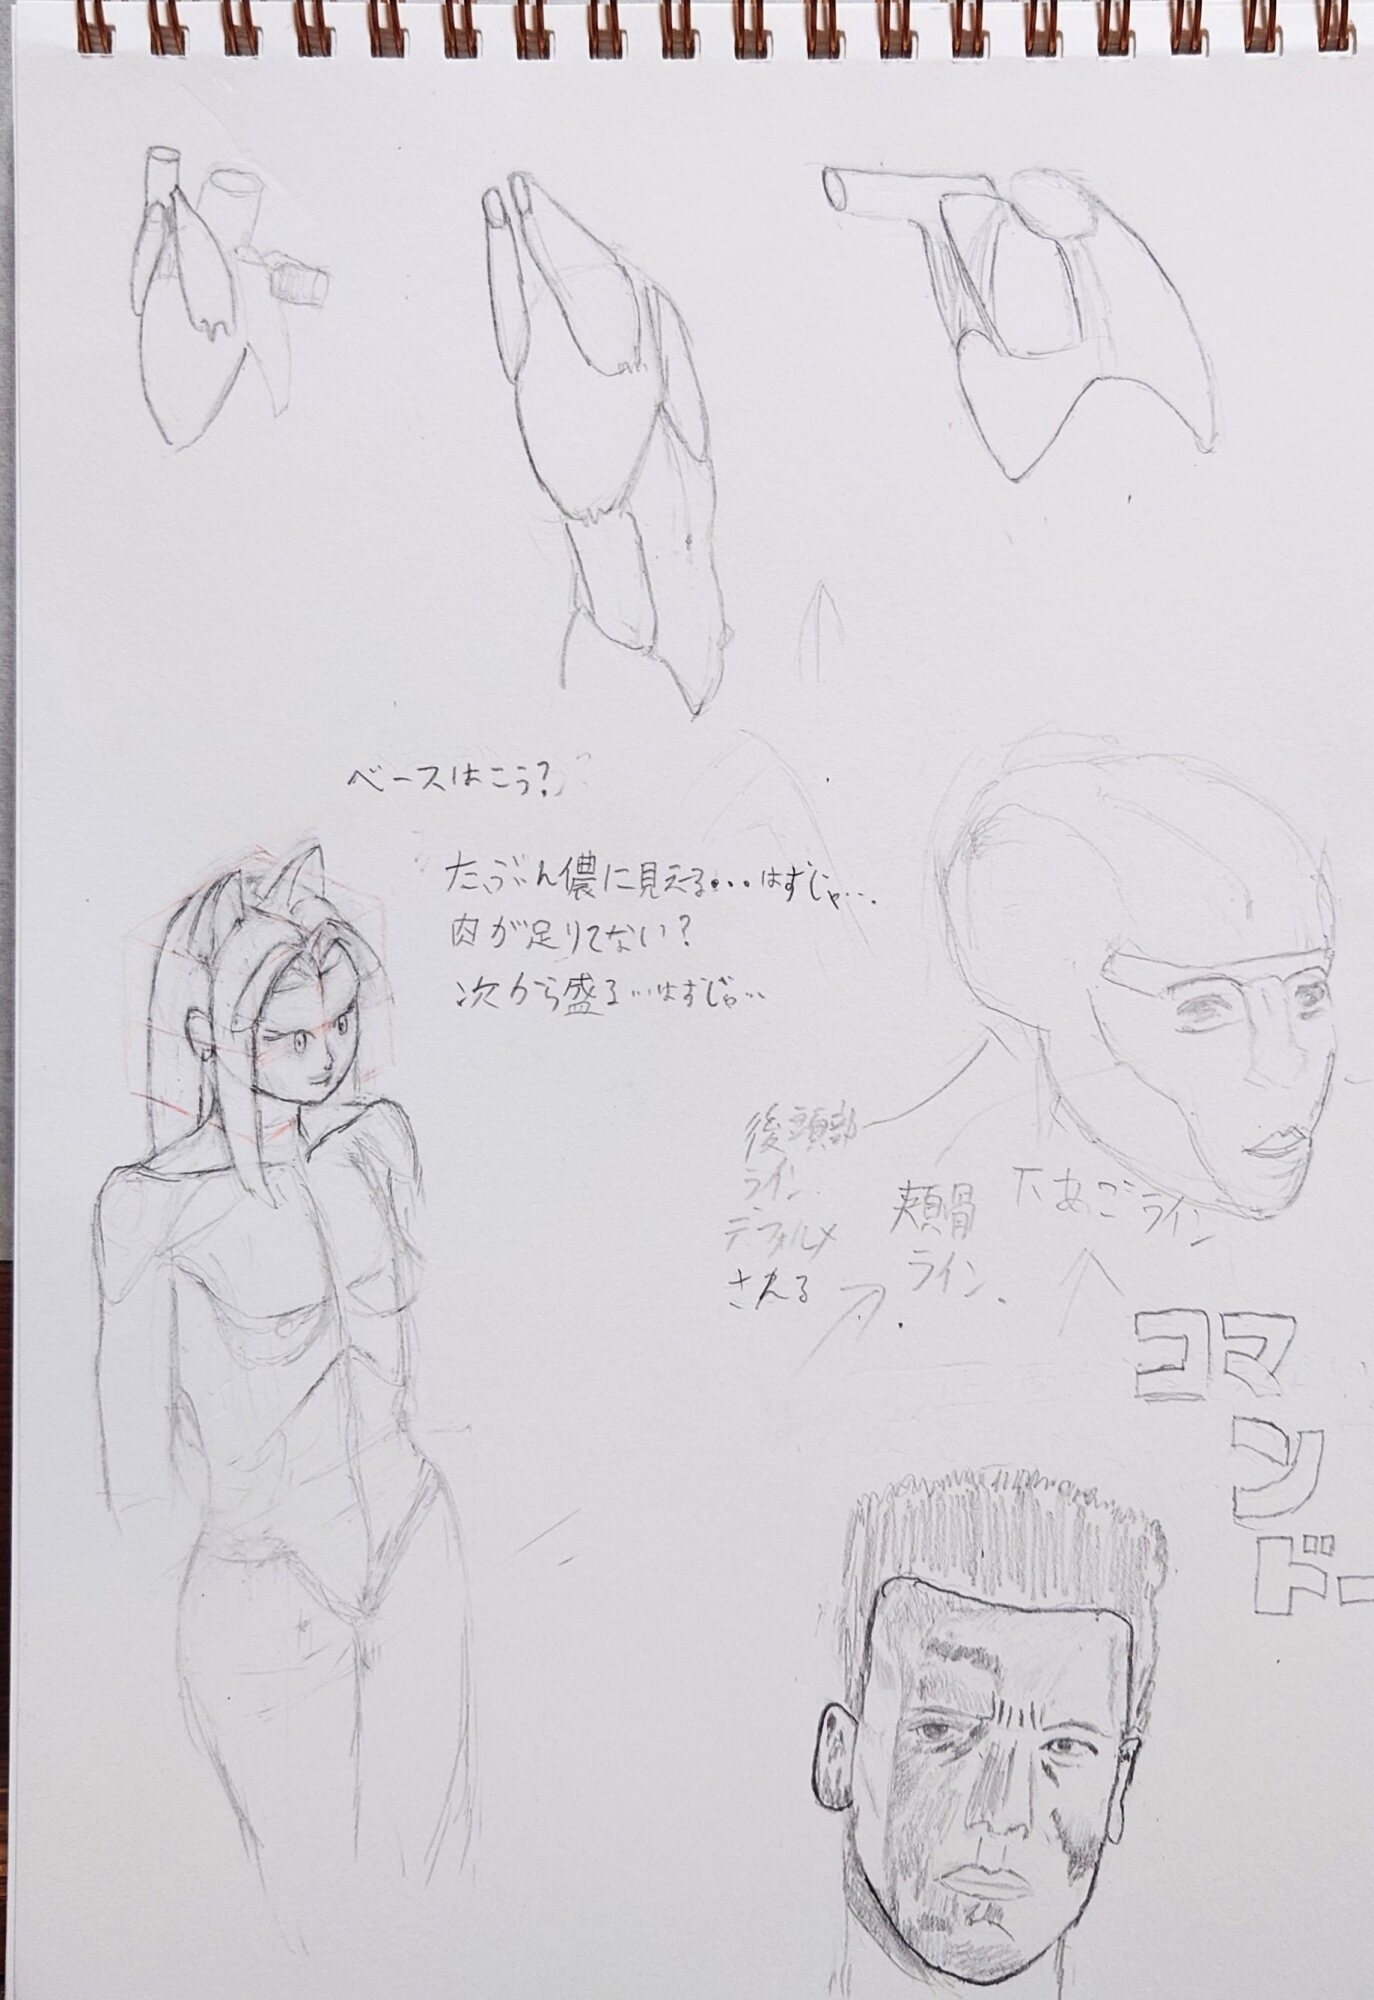 ベースはこう?
たぶん儂に見える・・・はずじゃ・・・
肉が足りてない?
次から盛る・・・はずじゃ・・・
後頭部
ライン
デフォルメ
さえる
頬骨
ライン
下あごライン
コマ
ン
ドー